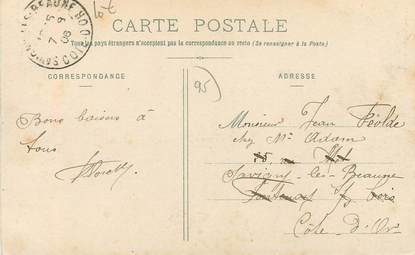 CARTE POSTALE
Tous les pays étrangers n'acceptent pas la correspondance au recto (Se renseigner à la Poste)
CORRESPONDANCE
ADRESSE
95
Bons baisers à
tous
Monsieur Jean Féolde
chez Mr Adam
Savigny-les-Beaune
Fontenay s/s Bois
Côte-d'Or